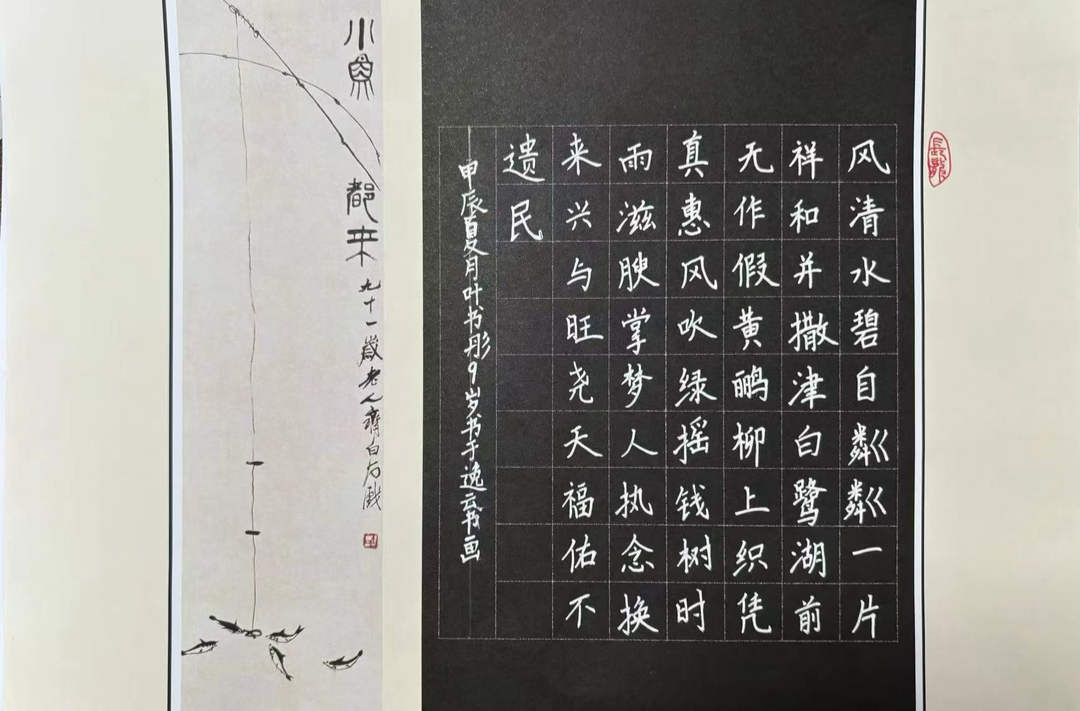 风清水碧自粼粼一片
祥和并撒津白鹭湖前
无作假黄鹂柳上织凭
真惠风吹绿摇钱树时
雨滋腴掌梦人执念换
来兴与旺尧天福佑不
遗民
甲辰夏月叶书彤9岁书于逸云书画
小魚都来
九十一歲老人齊白石戲